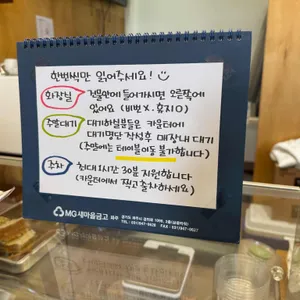 한번씩만 읽어주세요!
화장실 건물안에 들어가시면 오른쪽에 있어요 (비번X. 휴지O)
주말대기 대기하실분들은 카운터에 대기명단 작성후 매장내 대기
(주말에는 테이블이동 불가합니다)
주차 최대 1시간 30분 지원합니다
(카운터에서 찍고 출차하세요)
MG새마을금고 파주